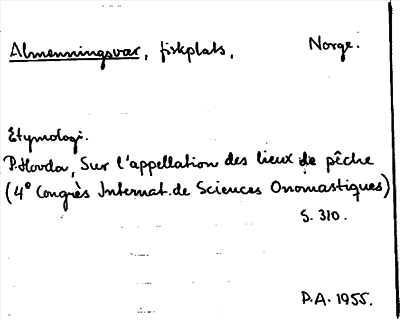 Almenningsvær, fiskplats, Norge.
Etymologi.
P. Hovda, Sur l'appellation des lieux de pêche
(4e Congrès Internat. de Sciences Onomastiques)
S. 310.
P.A. 1955.